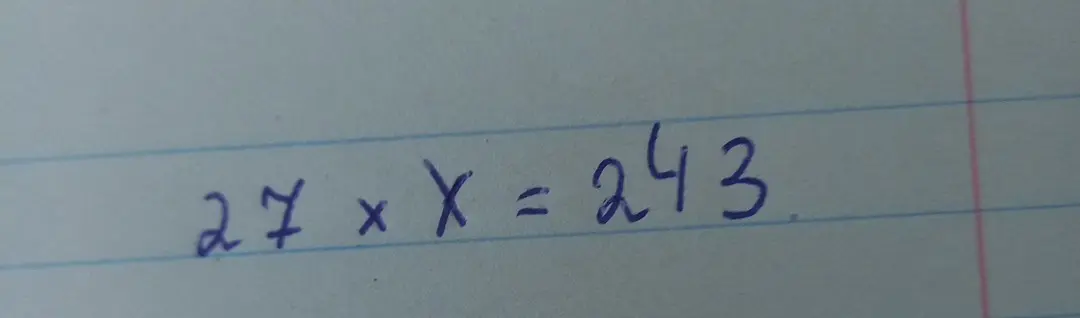 27 × X = 243